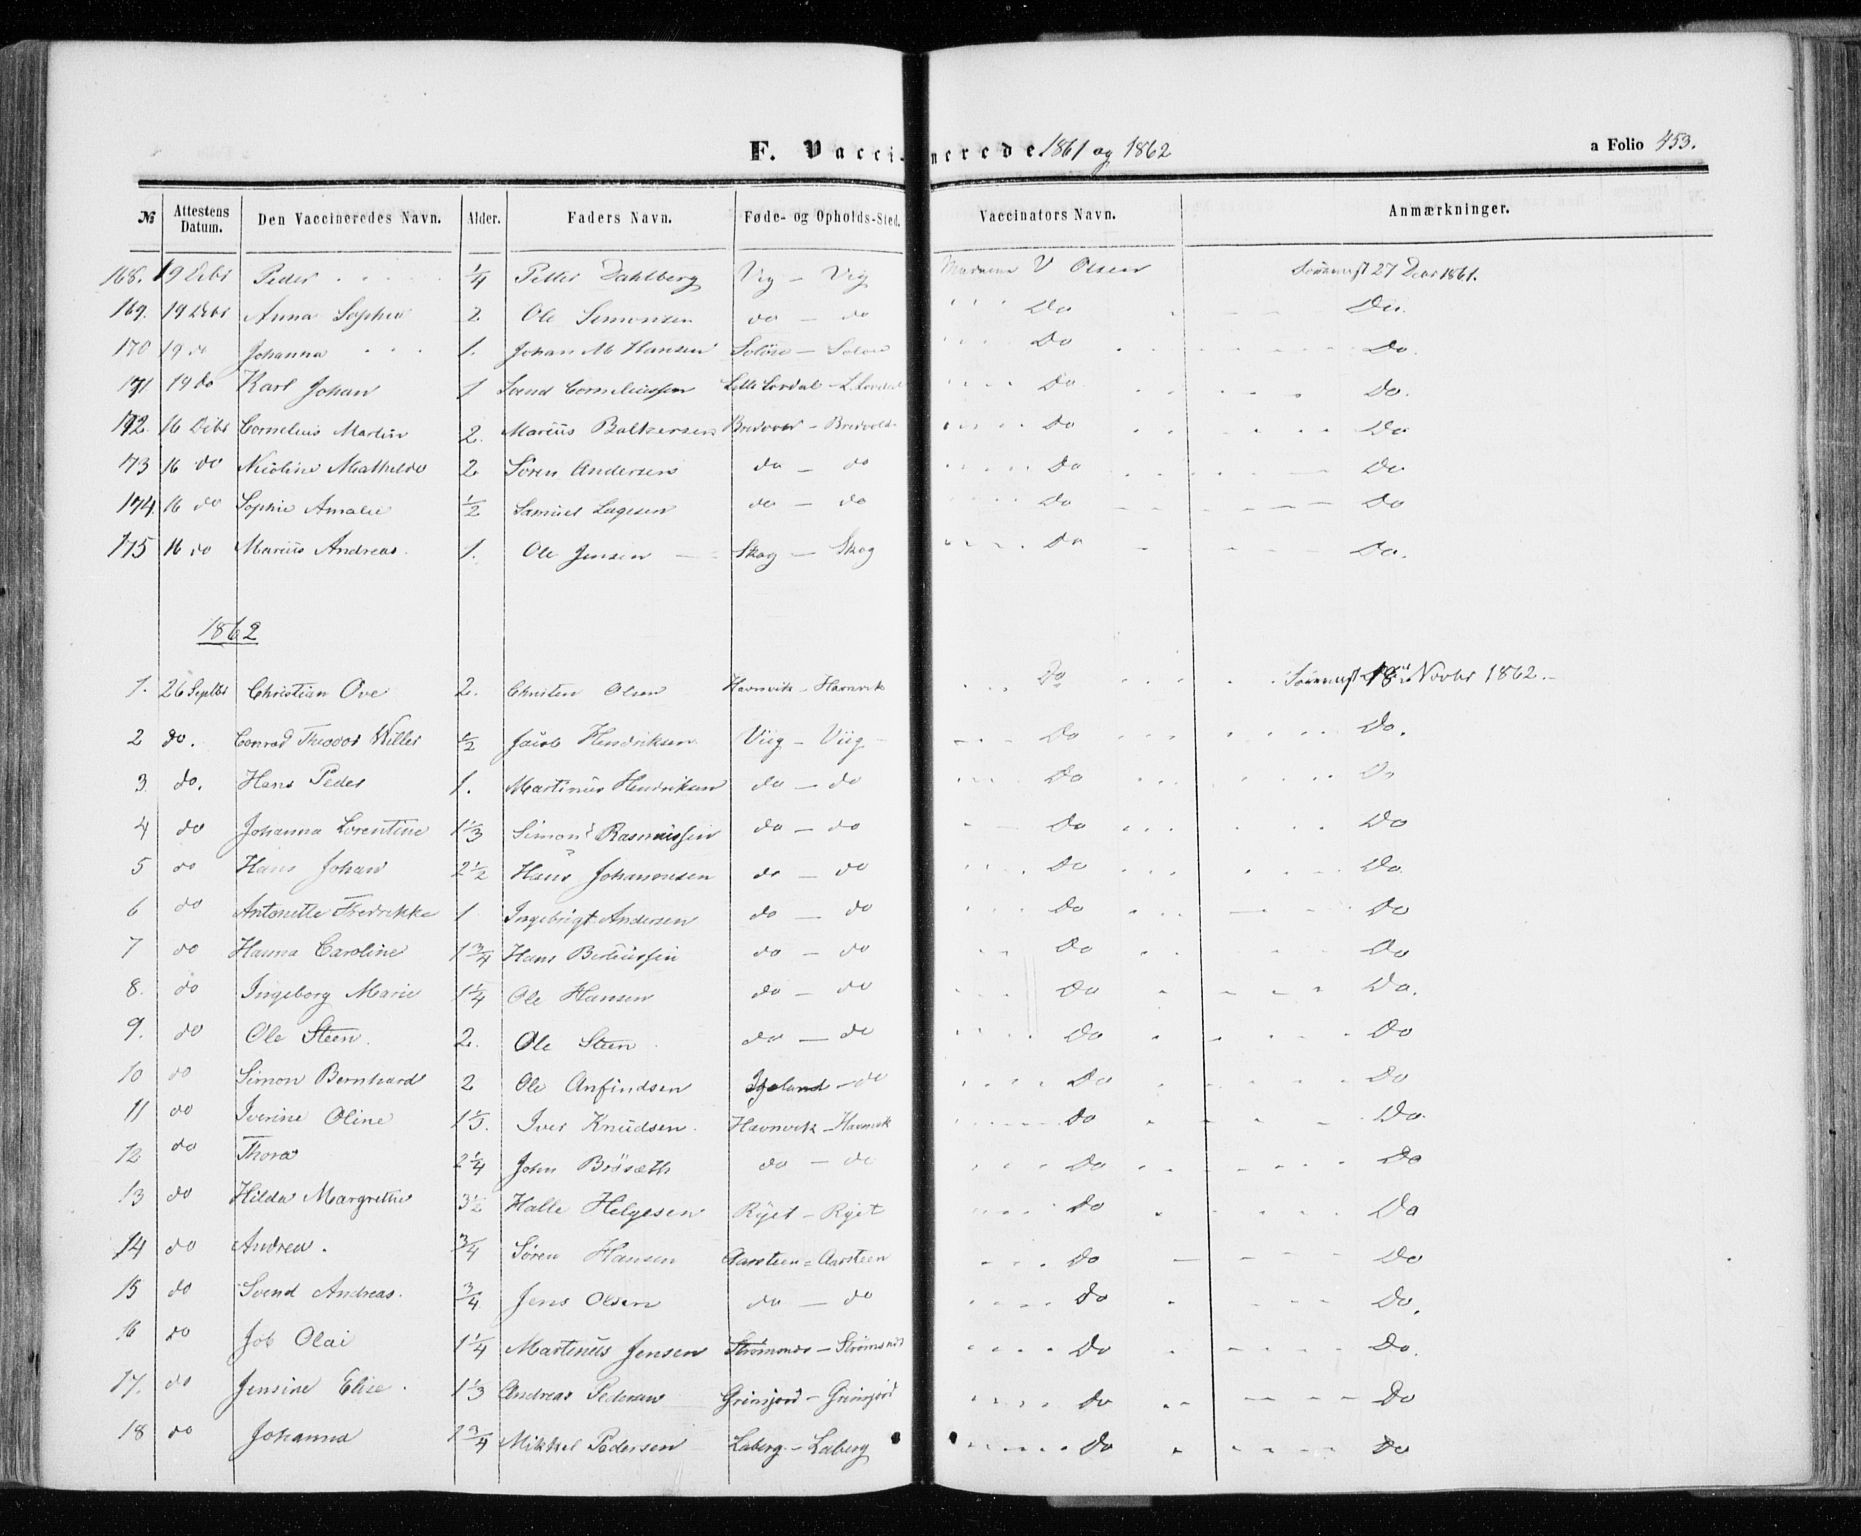 F. Vaccinerede 1861 og 1862 a Folio 453.
№ Attestens Datum. Den Vaccineredes Navn. Alder. Faders Navn. Føde- og Opholds-Sted. Vaccinators Navn. Anmærkninger.
168. 19 Debr Peder 1/4 Petter Dahlberg Vig - Vig V Olsen 27 Debr 1861.
169. 19 Debr Anna Sophie 2 Ole Simonsen do - do Do Do.
170 19 do Johanna 1. Johan M Hansen Do Do.
171 19 do Karl Johan 1 Corneliussen Do Do.
172. 16 Debr Cornelius Martin 2. Marius Balkersen Do Do
173 16 do Nicoline Mathilde 2 Søren Andersen do - do Do Do
174. 16 do Sophie Amalie 1/2 Samuel Lagesen do - do Do Do
175 16 do Marius Andreas. 1. Ole Jensen Skog - Skog Do Do.
1862
1. 26 Septbr Christian Ove 2. Christen Olsen Havnvik - Havnvik Do 18 Novbr 1862.
2 do. Conrad Theodor Willer 1/2 Jacob Hendriksen Viig - Viig Do Do.
3 do. Hans Peder 1. Martinus Hendriksen do - do Do Do
4 do Johanna Lorentine 1 1/3 Simon Rasmussen do - do Do Do
5 do Hans Johan 2 1/2 Hans Johannesen do - do Do Do
6 do Antonette Fredrikke 1 Ingebrigt Andersen do - do Do Do
7 do Hanna Caroline 1 3/4 Hans do - do Do Do
8. do Ingeborg Marie 1 1/4 Ole Hansen do - do Do Do.
9. do Ole Steen. 2. Ole Steen do - do Do Do
10 do Simon Bernhard 2 Ole Anfindsen - do Do Do
11 do Iverine Oline Iver Knudsen. Havnvik - Havnvik Do Do.
12 do Thora 2 1/4 John do - do Do Do
13 do Hilda Margrethe 3 1/2 Halle Helgesen Ryet - Ryet Do Do
14 do Andrea. 3/4 Søren Hansen Aarsteen = Aarsteen Do Do
15 do Svend Andreas. 3/4 Jens Olsen do - do Do Do.
16 do Job Olai 1 1/4 Martinus Jensen Do Do.
17. do Jensine Elise. 1 1/3 Andreas Pedersen Do Do
18 do Johanna Mikkel Pedersen Laberg - Laberg Do Do